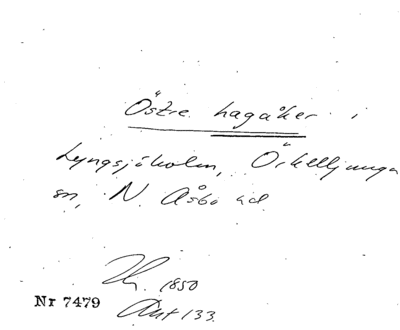 Östre hagåker i
Lyngsjöholm, Örkelljunga
sn, N. Åsbo hd.
Hg. 1850
Nr 7479
Akt 133.